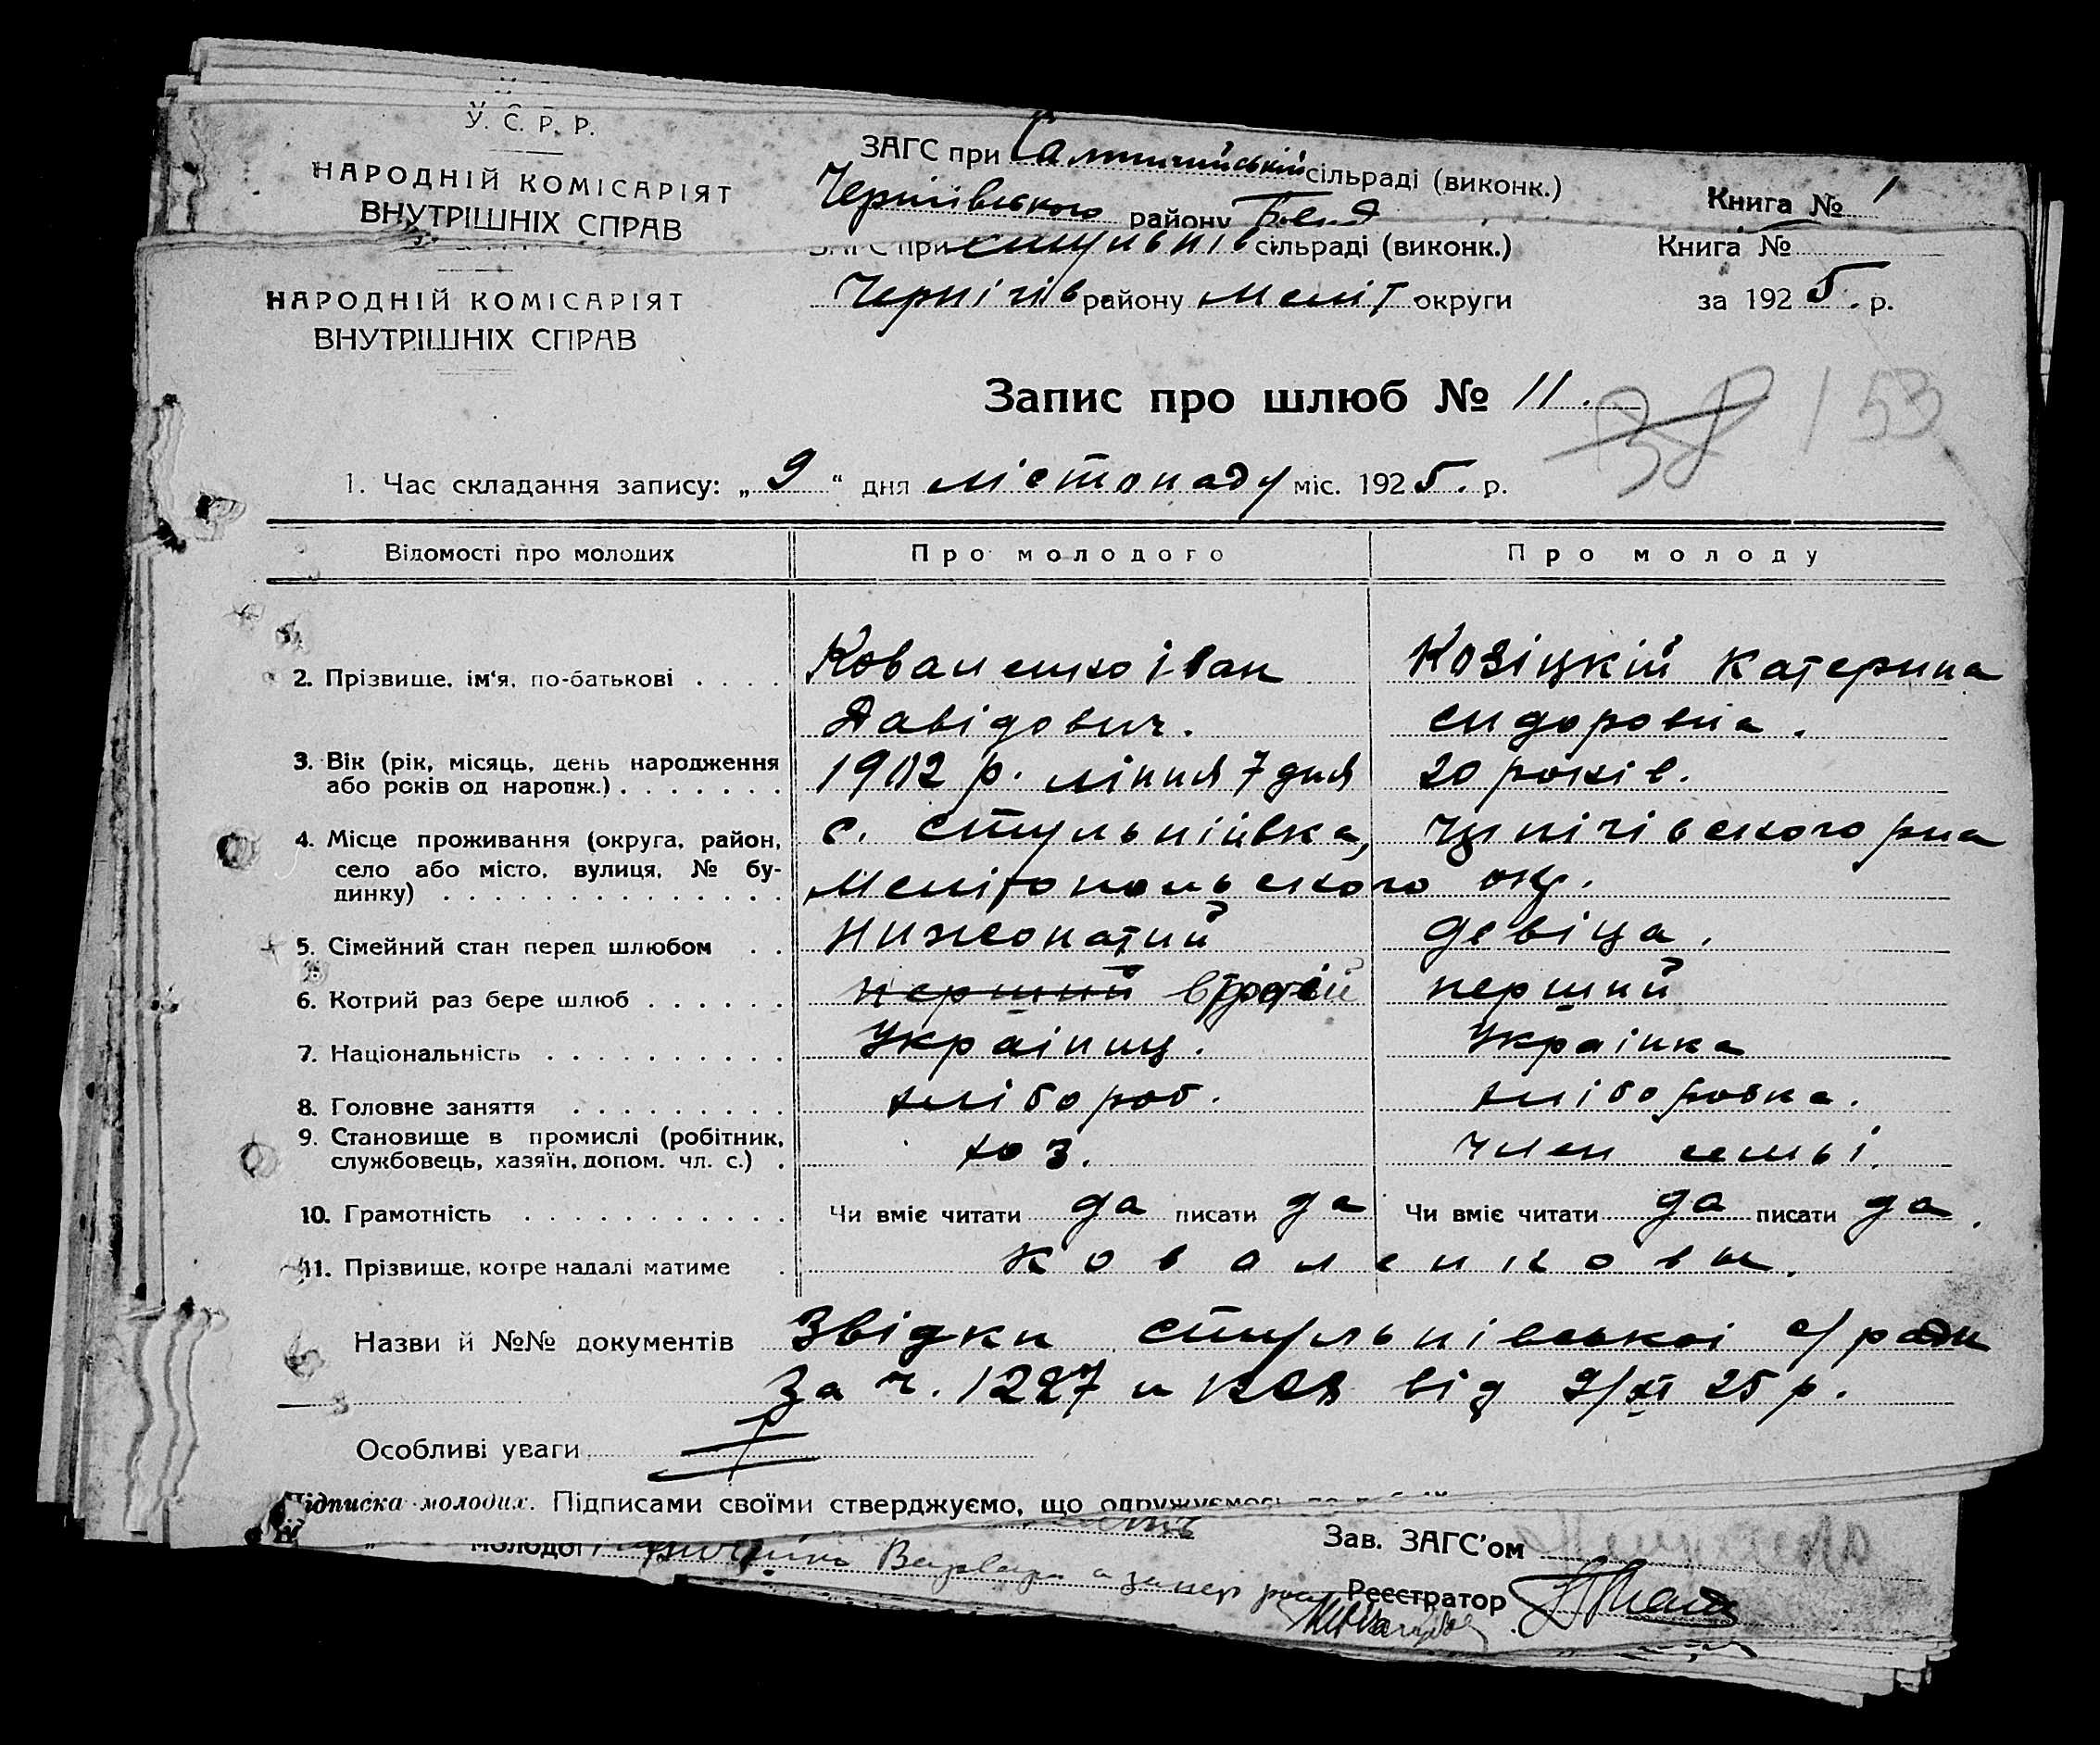 У. С. Р. Р.
НАРОДНІЙ КОМІСАРІЯТ
ВНУТРІШНІХ СПРАВ
ЗАГС при сільраді (виконк.)
Чернігівського району
Книга № 1
ЗАГС при Стульнів сільраді (виконк.)
Чернігів району Меліт округи
Книга №
за 1925. р.
НАРОДНІЙ КОМІСАРІЯТ
ВНУТРІШНІХ СПРАВ
Запис про шлюб № 11.
38 153
1. Час складання запису: „9“ дня лістопаду міс. 1925. р.
Відомості про молодих Про молодого Про молоду
2. Прізвище, ім'я, по-батькові Коваленко Іван Козіцкій Катерина
Давідович. Сидоровна.
3. Вік (рік, місяць, день народження 1902 р. липня 7 дня 20 років.
або років од народж.)
4. Місце проживання (округа, район, с. Стульнівка,
село або місто, вулиця, № бу- Мелітопольского окр.
динку)
5. Сімейний стан перед шлюбом нижонатий девіца.
6. Котрий раз бере шлюб перший втрой перший
7. Національність Українец. Українка
8. Головне заняття хлібороб. хліборобка.
9. Становище в промислі (робітник, хоз. член семьі.
службовець, хазяїн, допом. чл. с.)
10. Грамотність Чи вміє читати да писати да Чи вміє читати да писати да.
11. Прізвище, котре надалі матиме Коваленковы.
Назви й №№ документів Звідки Стульнівської с/ради
За ч. 1227 и від 9/XI 25 р.
Особливі уваги
Підписка молодих. Підписами своїми стверджуємо, що одружуємось
молодої Варвара а за неї
Зав. ЗАГС'ом
Реєстратор